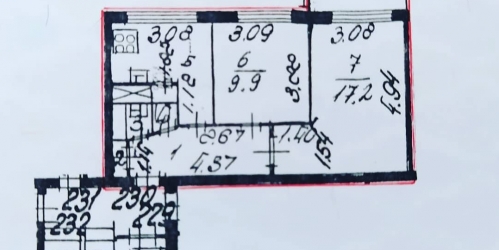 3.08 3.09 3.08
6
9.9
7
17.2
4.94
1.12 5
3
4
2.67 1.40
1.54
1
4.37
2
231 230
232 229